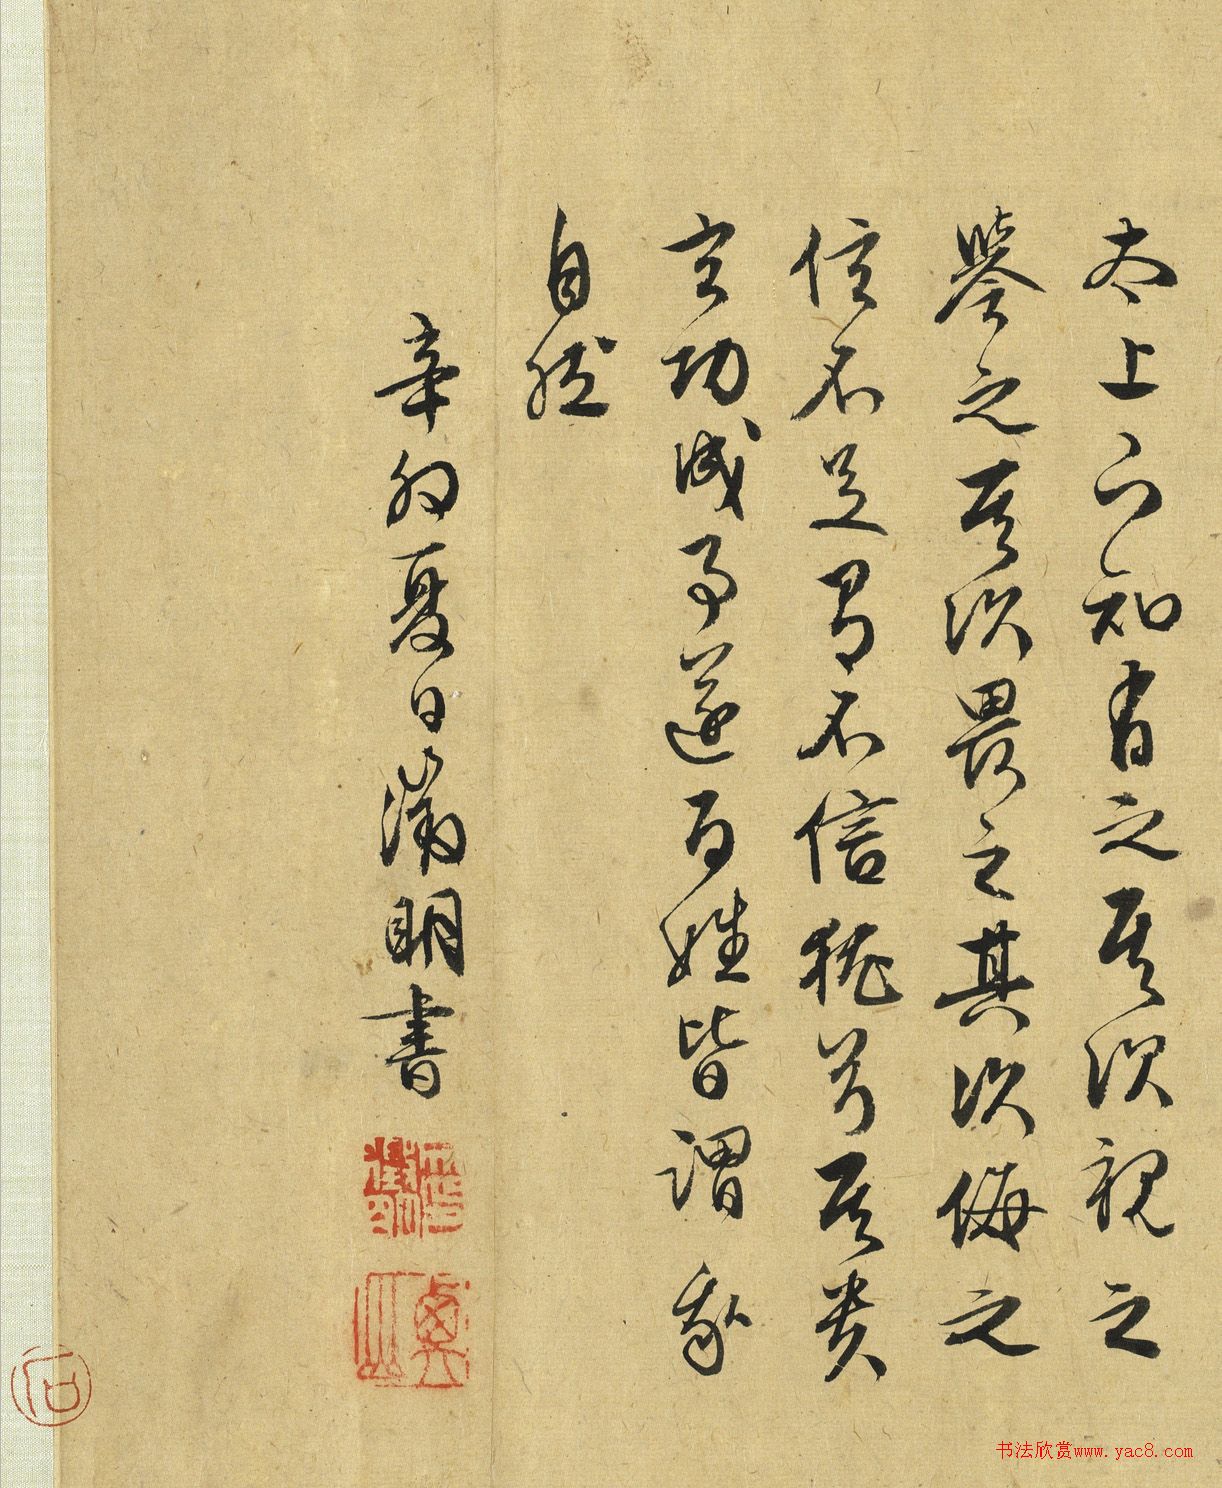 太上下知有之其次視之
譽之其次畏之其次侮之
信不足焉不信猶兮其貴
言功成事遂百姓皆謂我
自然
辛卯夏日徵明書
书法欣赏www.yac8.com